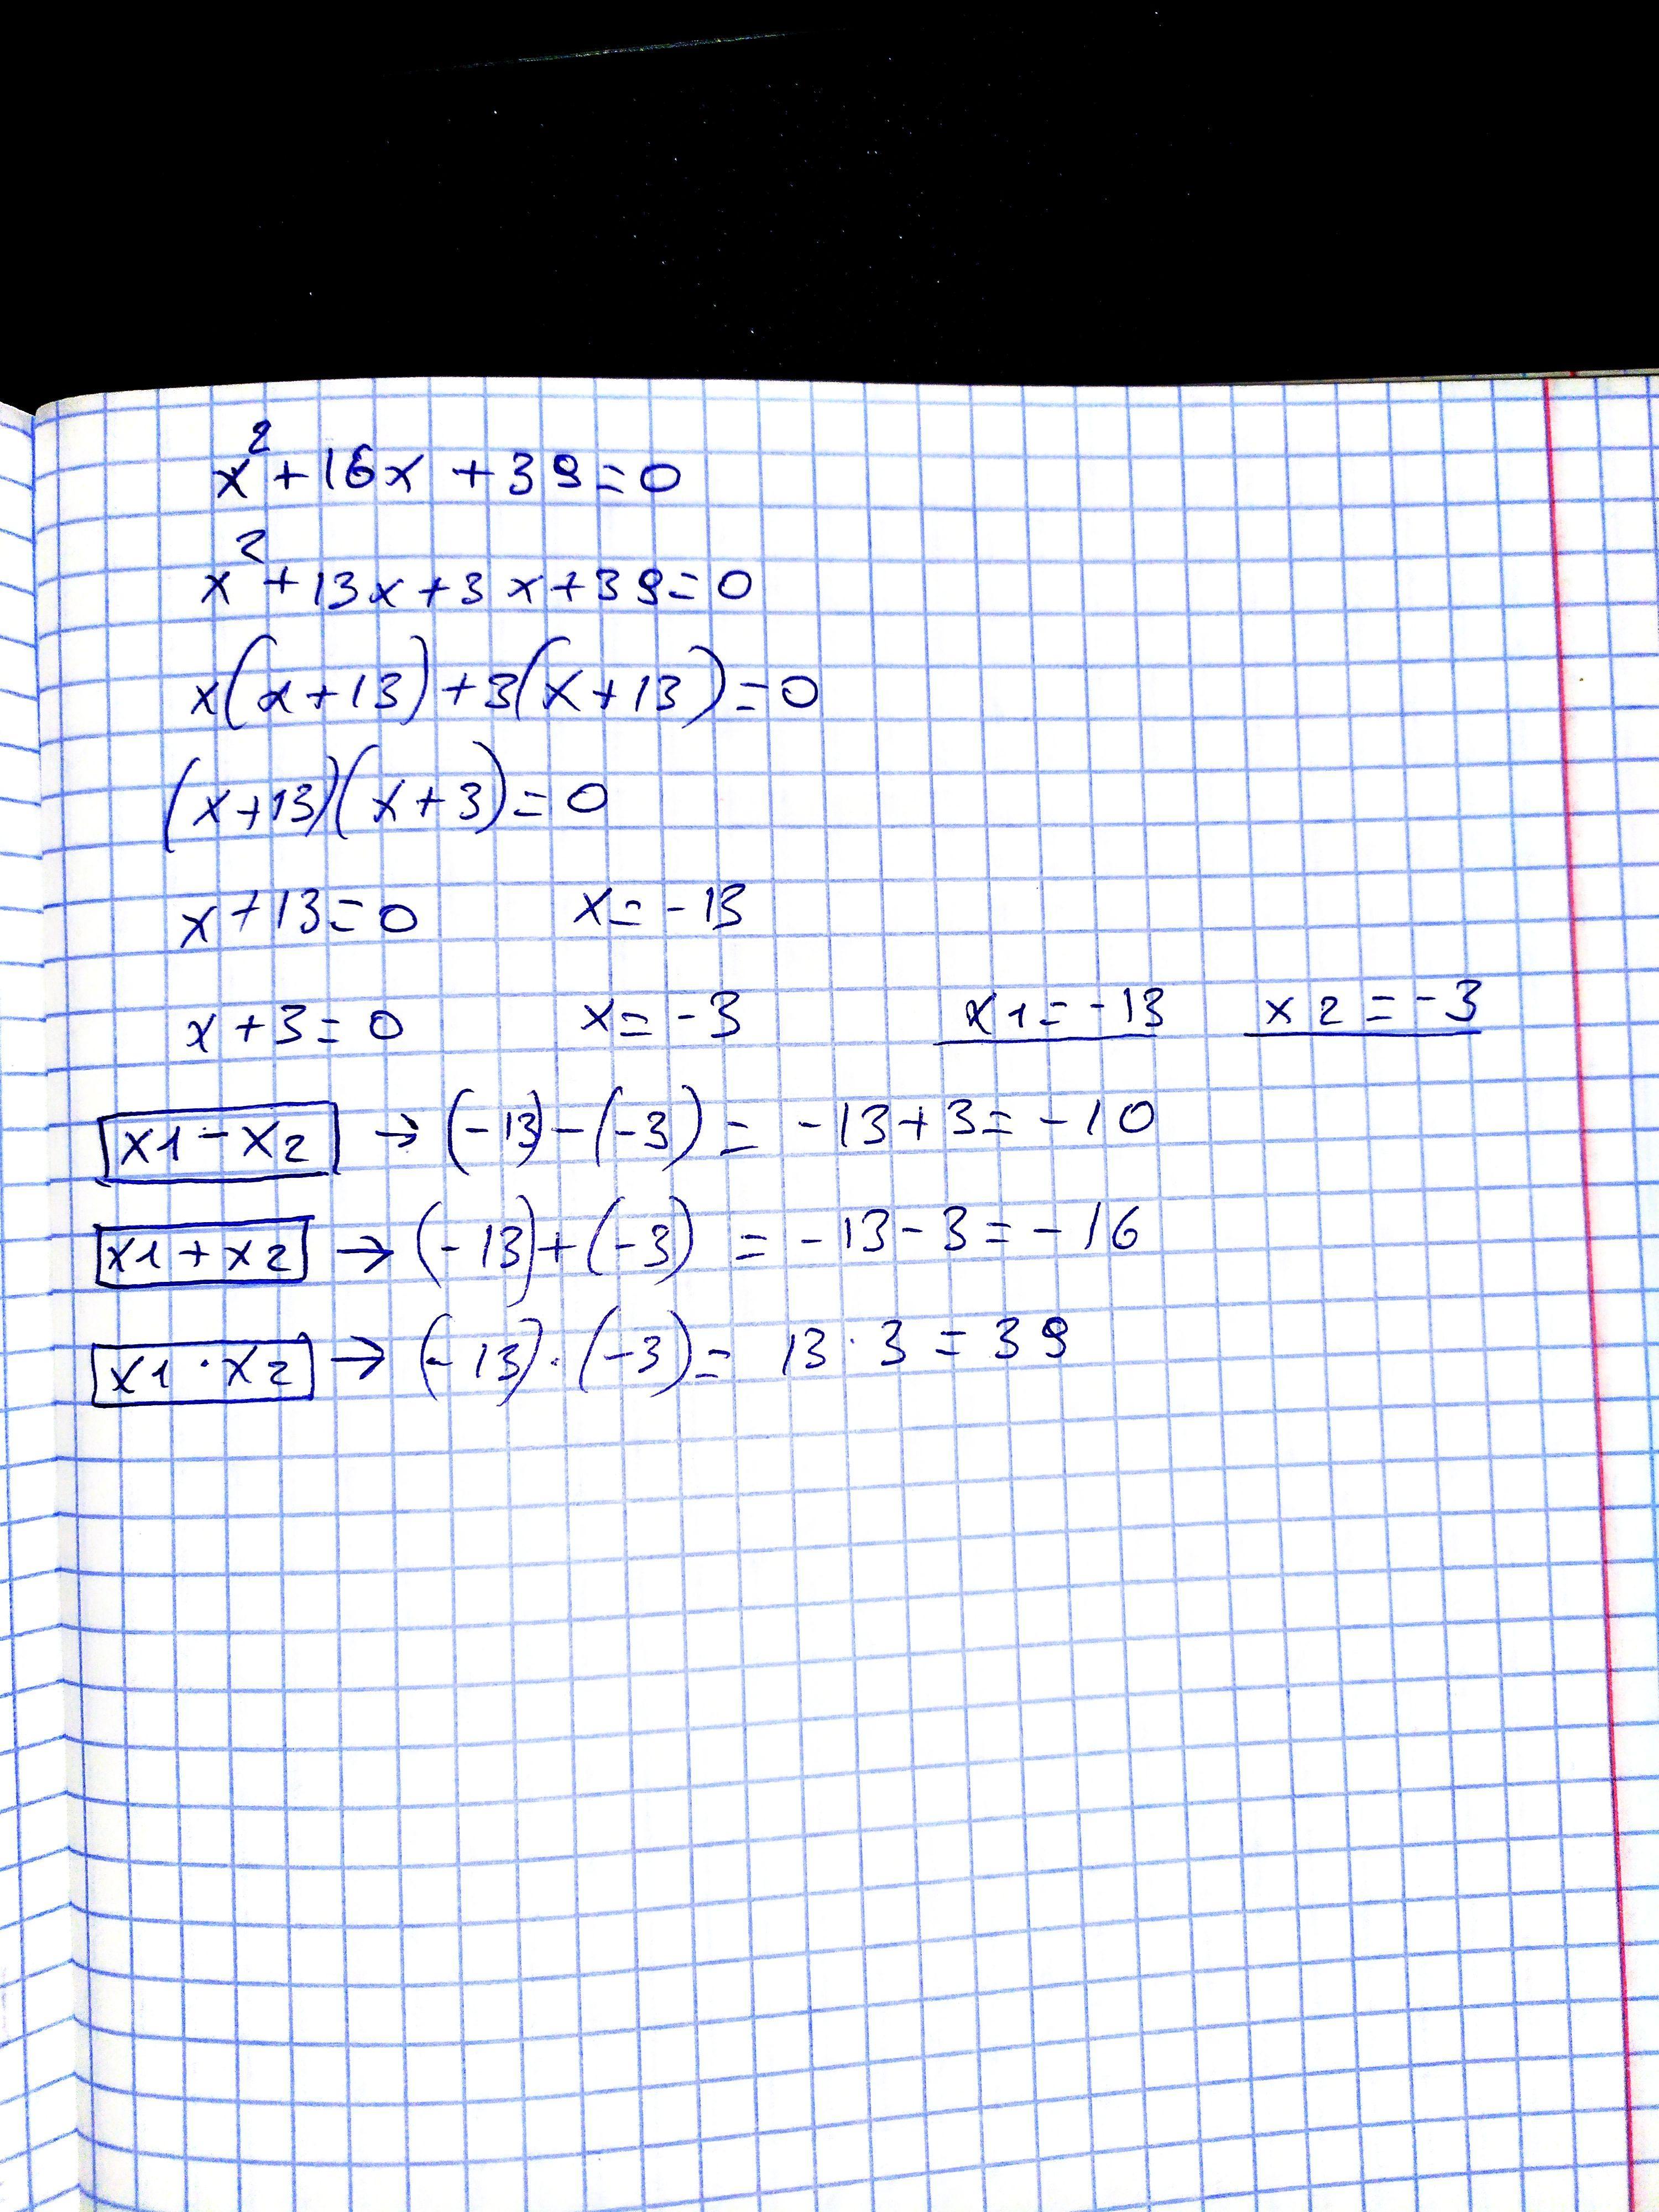 x² + 16x + 39 = 0
x² + 13x + 3x + 39 = 0
x(x+13) + 3(x+13) = 0
(x+13)(x+3) = 0
x + 13 = 0 x = -13
x + 3 = 0 x = -3 x1 = -13 x2 = -3
x1 - x2 → (-13) - (-3) = -13 + 3 = -10
x1 + x2 → (-13) + (-3) = -13 - 3 = -16
x1 · x2 → (-13) · (-3) = 13 · 3 = 39